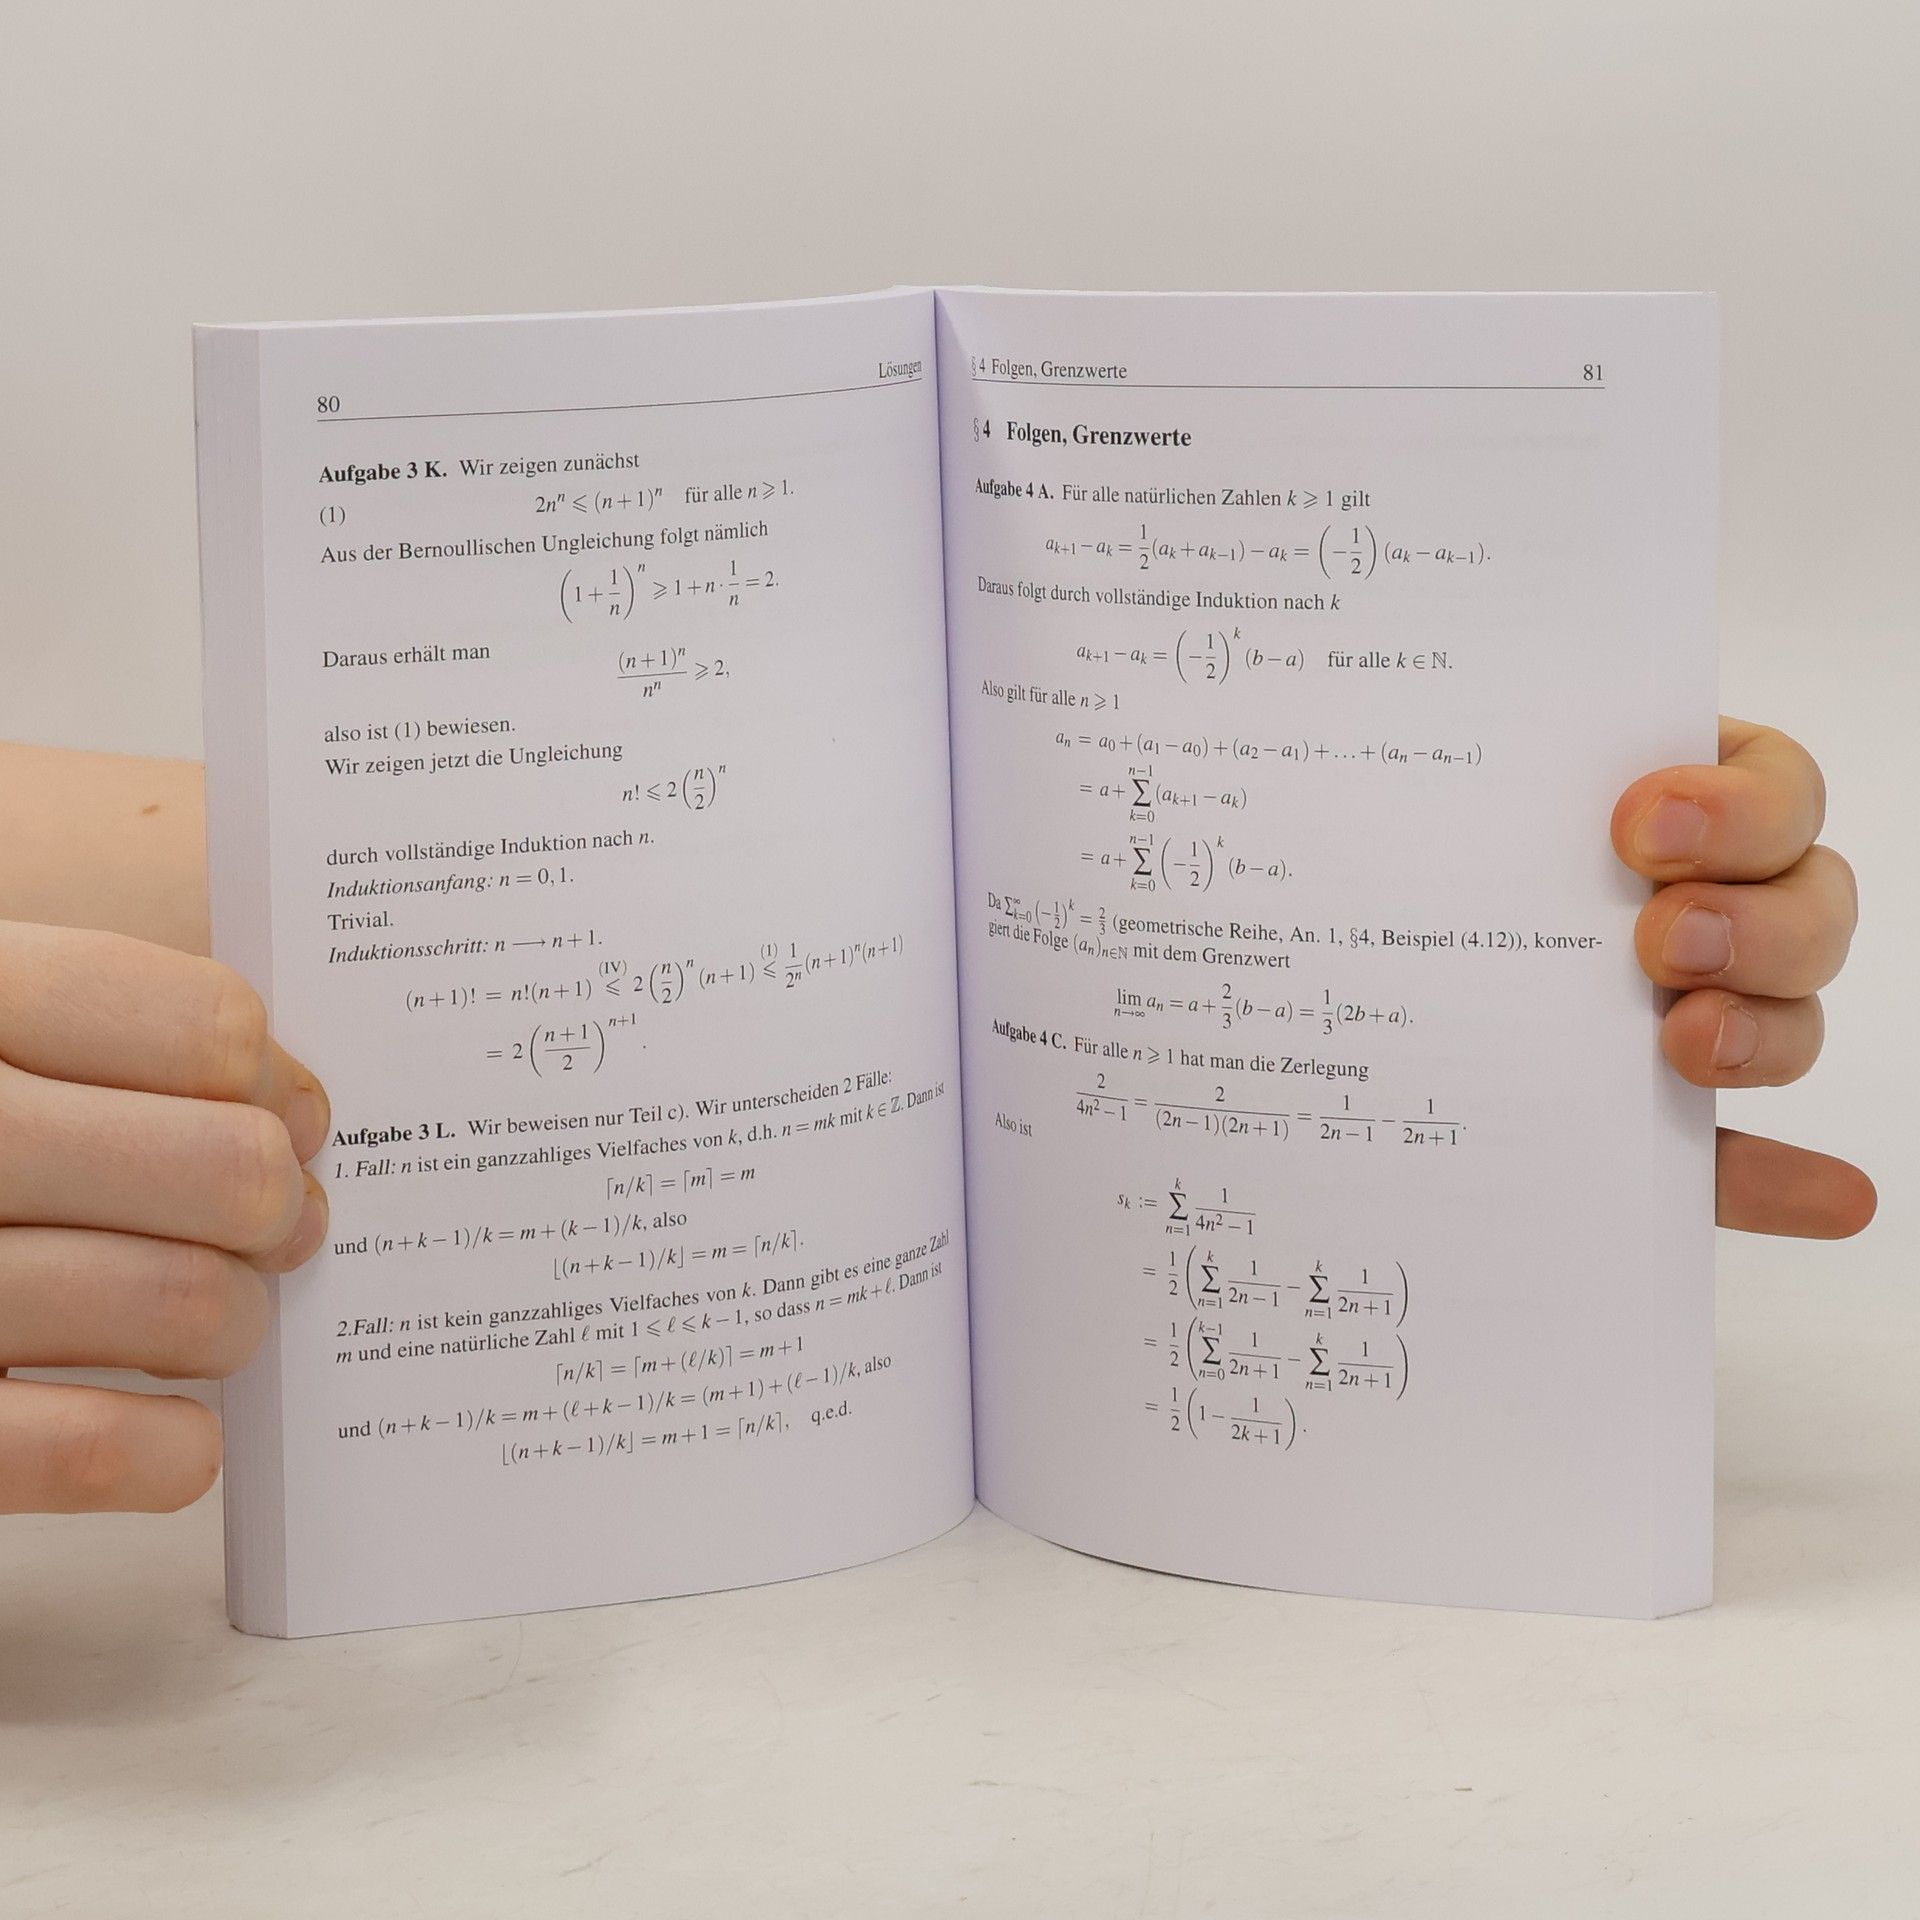 80 Lösungen
Aufgabe 3 K. Wir zeigen zunächst
(1) 2nⁿ ⩽ (n+1)ⁿ für alle n ⩾ 1.
Aus der Bernoullischen Ungleichung folgt nämlich
(1 + 1/n)ⁿ ⩾ 1 + n · 1/n = 2.
Daraus erhält man
(n+1)ⁿ/nⁿ ⩾ 2,
also ist (1) bewiesen.
Wir zeigen jetzt die Ungleichung
n! ⩽ 2 (n/2)ⁿ
durch vollständige Induktion nach n.
Induktionsanfang: n = 0, 1.
Trivial.
Induktionsschritt: n ⟶ n+1.
(n+1)! = n!(n+1) ⩽^(IV) 2 (n/2)ⁿ (n+1) ⩽^(1) 1/2ⁿ (n+1)ⁿ(n+1)
= 2 ((n+1)/2)ⁿ⁺¹.
Aufgabe 3 L. Wir beweisen nur Teil c). Wir unterscheiden 2 Fälle:
1. Fall: n ist ein ganzzahliges Vielfaches von k, d.h. n = mk mit k ∈ ℤ. Dann ist
⌈n/k⌉ = ⌈m⌉ = m
und (n+k−1)/k = m+(k−1)/k, also
⌊(n+k−1)/k⌋ = m = ⌈n/k⌉.
2.Fall: n ist kein ganzzahliges Vielfaches von k. Dann gibt es eine ganze Zahl
m und eine natürliche Zahl ℓ mit 1 ⩽ ℓ ⩽ k−1, so dass n = mk+ℓ. Dann ist
⌈n/k⌉ = ⌈m+(ℓ/k)⌉ = m+1
und (n+k−1)/k = m+(ℓ+k−1)/k = (m+1)+(ℓ−1)/k, also
⌊(n+k−1)/k⌋ = m+1 = ⌈n/k⌉, q.e.d.
§ 4 Folgen, Grenzwerte 81
§ 4 Folgen, Grenzwerte
Aufgabe 4 A. Für alle natürlichen Zahlen k ⩾ 1 gilt
aₖ₊₁ − aₖ = 1/2 (aₖ + aₖ₋₁) − aₖ = (−1/2) (aₖ − aₖ₋₁).
Daraus folgt durch vollständige Induktion nach k
aₖ₊₁ − aₖ = (−1/2)ᵏ (b−a) für alle k ∈ ℕ.
Also gilt für alle n ⩾ 1
aₙ = a₀ + (a₁ − a₀) + (a₂ − a₁) + … + (aₙ − aₙ₋₁)
= a + ∑_{k=0}^{n−1} (aₖ₊₁ − aₖ)
= a + ∑_{k=0}^{n−1} (−1/2)ᵏ (b−a).
Da ∑_{k=0}^{∞} (−1/2)ᵏ = 2/3 (geometrische Reihe, An. 1, §4, Beispiel (4.12)), konver-
giert die Folge (aₙ)_{n∈ℕ} mit dem Grenzwert
lim_{n→∞} aₙ = a + 2/3 (b−a) = 1/3 (2b+a).
Aufgabe 4 C. Für alle n ⩾ 1 hat man die Zerlegung
2/(4n²−1) = 2/((2n−1)(2n+1)) = 1/(2n−1) − 1/(2n+1).
Also ist
sₖ := ∑_{n=1}^{k} 1/(4n²−1)
= 1/2 (∑_{n=1}^{k} 1/(2n−1) − ∑_{n=1}^{k} 1/(2n+1))
= 1/2 (∑_{n=0}^{k−1} 1/(2n+1) − ∑_{n=1}^{k} 1/(2n+1))
= 1/2 (1 − 1/(2k+1)).